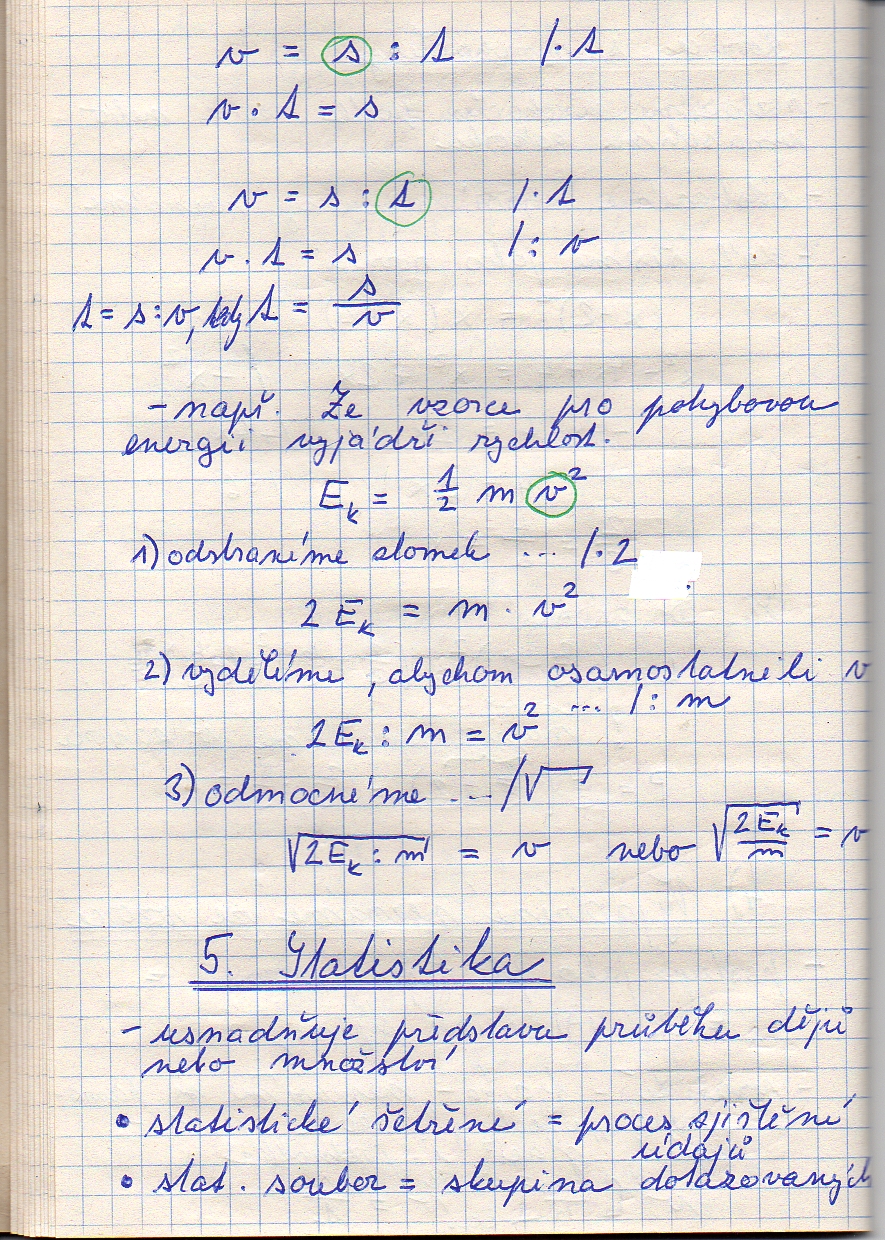 v = s : t /· t
v · t = s
v = s : t /· t
v · t = s /: v
t = s : v, tedy t = s/v
- např. Ze vzorce pro pohybovou
energii vyjádři rychlost.
Eₖ = 1/2 m v²
1) odstraníme zlomek ... /· 2
2 Eₖ = m · v²
2) vydělíme, abychom osamostatnili v
... /: m
2Eₖ : m = v²
3) odmocníme ... /√
√(2Eₖ : m) = v nebo √(2Eₖ/m) = v
5. Statistika
- usnadňuje představu průběhu dějů
nebo množství
• statistické šetření = proces zjištění
údajů
• stat. soubor = skupina dotazovaných